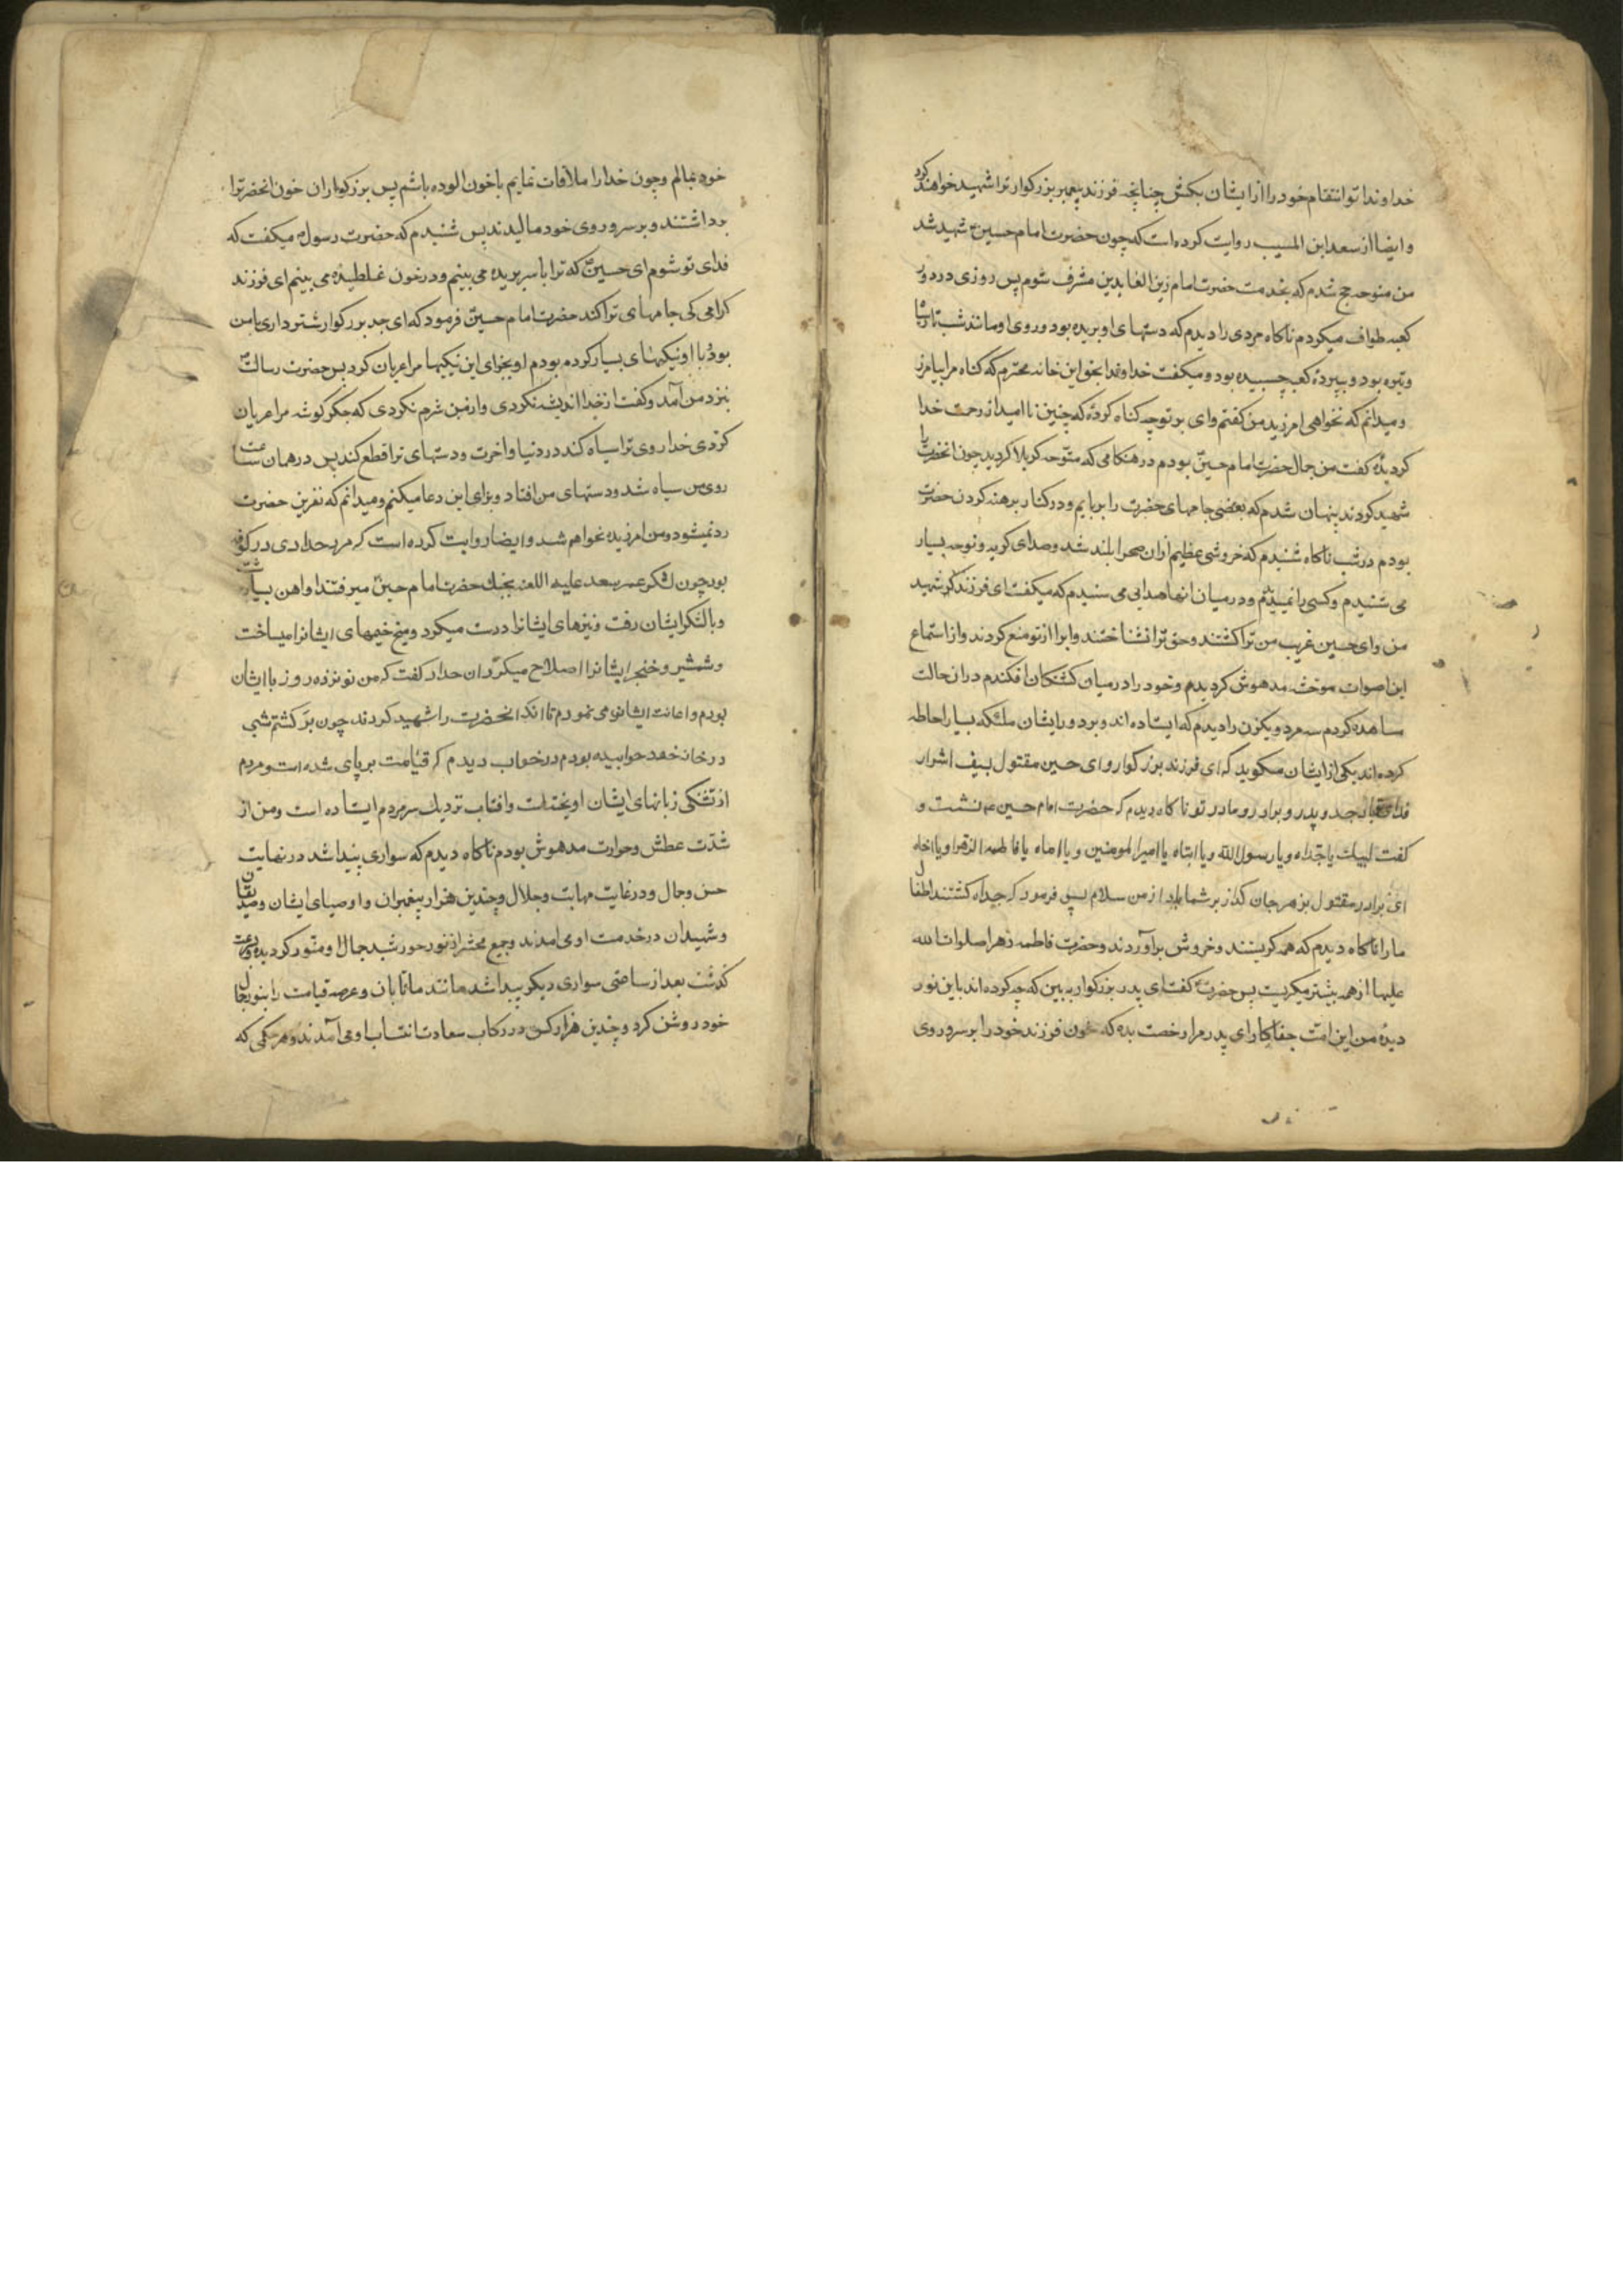 خداوندا تو انتقام خود را از ایشان بکش چنانچه فرزند پیغمبر بزرکوار ترا شهید خواهند کرد
و ایضا از سعد ابن المسیب روایت کرده است که چون حضرت امام حسین ع شهید شد
من متوجه حج شدم که بخدمت حضرت امام زین العابدین مشرف شوم پس روزی در دور
کعبه طواف میکردم ناکاه مردی را دیدم که دستهای او بریده بود و روی او مانند شب تار سیاه
و تیره بود و بپردۀ کعبه چسبیده بود و میکفت خداوندا بحق این خانه محترم که کناه مرا بیامرز
و میدانم که نخواهی امرزید من کفتم وای بر تو چه کناه کردۀ که چنین نا امید از رحمت خدا
کردیدۀ کفت من جمال حضرت امام حسین بودم در هنکامی که متوجه کربلا کردید چون انحضرت را
شهید کردند پنهان شدم که بعضی جامهای حضرت را بربایم و در کنار برهنه کردن حضرت
بودم در شب ناکاه شنیدم که خروشی عظیم از ان صحرا بلند شد و صدای کریه و نوحه بسیار
می شنیدم و کسی را نمیدیدم و در میان انها صدایی می شنیدم که میکفت ای فرزند شهید
من وای حسین غریب من ترا کشتند و حق ترا نشناختند و ابرا از تو منع کردند و از استماع
این اصوات موحش مدهوش کردیدم و خود را در میان کشتکان افکندم در ان حالت
مشاهده کردم سه مرد و یکزن را دیدم که ایستاده اند و بر دور ایشان ملئکه بسیار احاطه
کرده اند یکی از ایشان میکوید که ای فرزند بزرکوار و ای حسین مقتول بسیف اشرار
فدای تو باد جد و پدر و برادر و مادر تو ناکاه دیدم که حضرت امام حسین ع نشست و
کفت لبیک یا جداه و یا رسول الله و یا ابتاه یا امیر المومنین و یا اماه یا فاطمه الزهرا و یا اخاه
ای برادر مقتول بزهر جان کداز بر شما باد از من سلام پس فرمود که جداه کشتند اطفال
ما را ناکاه دیدم که همه کریستند و خروش برآوردند و حضرت فاطمه زهرا صلوات الله
علیها از همه بیشتر میکریست پس حضرت کفت ای پدر بزرکوار ببین که چه کرده اند باین نور
دیدۀ من این امت جفاکار ای پدر مرا رخصت بده که خون فرزند خود را بر سر و روی
خود بمالم و چون خدا را ملاقات نمایم با خون الوده باشم پس بزرکواران خون انحضرترا
برداشتند و بر سر و روی خود مالیدند پس شنیدم که حضرت رسول ص میکفت که
فدای تو شوم ای حسین که ترا با سر بریده می بینم و در خون غلطیده می بینم ای فرزند
کرامی کی جامهای ترا کند حضرت امام حسین فرمود که ای جد بزرکوار شترداری با من
بود با او نیکیهای بسیار کرده بودم او بجزای این نیکیها مرا عریان کرد پس حضرت رسالت
بنزد من آمد و کفت از خدا اندیشه نکردی و از من شرم نکردی که جکر کوشه مرا عریان
کردی خدا روی ترا سیاه کند در دنیا و اخرت و دستهای ترا قطع کند پس در همان ساعت
روی من سیاه شد و دستهای من افتاد و برای این دعا میکنم و میدانم که نفرین حضرت
رد نمیشود و من امرزیده نخواهم شد و ایضا روایت کرده است که مرد حدادی در کوفه
بود چون لشکر عمر سعد علیه اللعنه بجنک حضرت امام حسین میرفتند او اهن بسیار برداشت
و با لشکر ایشان رفت و نیزهای ایشانرا درست میکرد و میخ خیمهای ایشانرا میساخت
و شمشیر و خنجر ایشانرا اصلاح میکرد و ان حداد کفت که من نوزده روز با ایشان
بودم و اعانت ایشان می نمودم تا انکه انحضرت را شهید کردند چون برکشتم شبی
در خانه خود خوابیده بودم در خواب دیدم که قیامت بر پای شده است و مردم
از تشنکی زبانهای ایشان اویخته است و افتاب نزدیک سر مردم ایستاده است و من از
شدت عطش و حرارت مدهوش بودم ناکاه دیدم که سواری پیدا شد در نهایت
حسن و جمال و در غایت مهابت و جلال و چندین هزار پیغمبران و اوصیای ایشان و صدیقان
و شهیدان در خدمت او می امدند و جمیع محشر از نور خورشید جمال او منور کردیده و بسرعت
کذشت بعد از ساعتی سواری دیکر پیدا شد مانند ماه تابان و عرصه قیامت را بنور جمال
خود روشن کرد و چندین هزار کس در رکاب سعادت انتساب او می آمدند و هر حکمی که